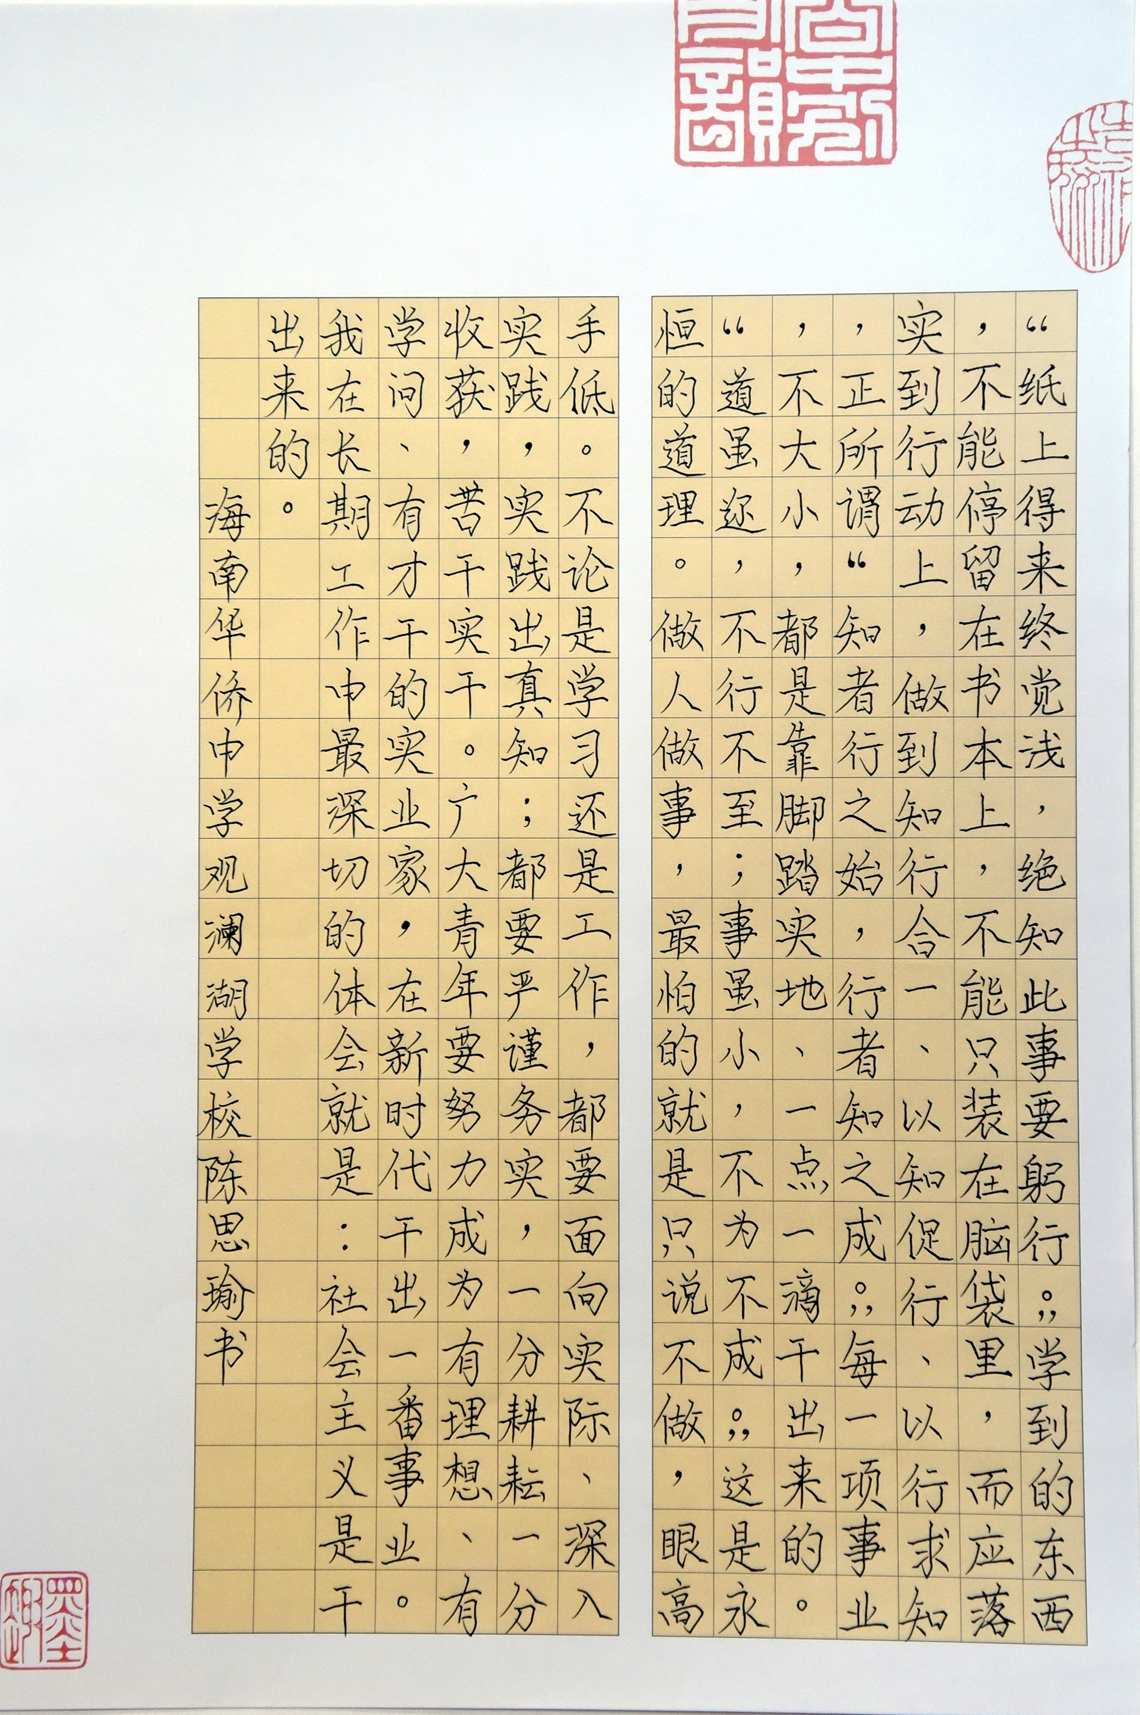 “纸上得来终觉浅，绝知此事要躬行。”学到的东西
，不能停留在书本上，不能只装在脑袋里，而应落
实到行动上，做到知行合一、以知促行、以行求知
，正所谓“知者行之始，行者知之成。”每一项事业
，不大小，都是靠脚踏实地、一点一滴干出来的。
“道虽迩，不行不至；事虽小，不为不成。”这是永
恒的道理。做人做事，最怕的就是只说不做，眼高
手低。不论是学习还是工作，都要面向实际、深入
实践，实践出真知；都要严谨务实，一分耕耘一分
收获，苦干实干。广大青年要努力成为有理想、有
学问、有才干的实业家，在新时代干出一番事业。
我在长期工作中最深切的体会就是：社会主义是干
出来的。
海南华侨中学观澜湖学校陈思瑜书
墨趣